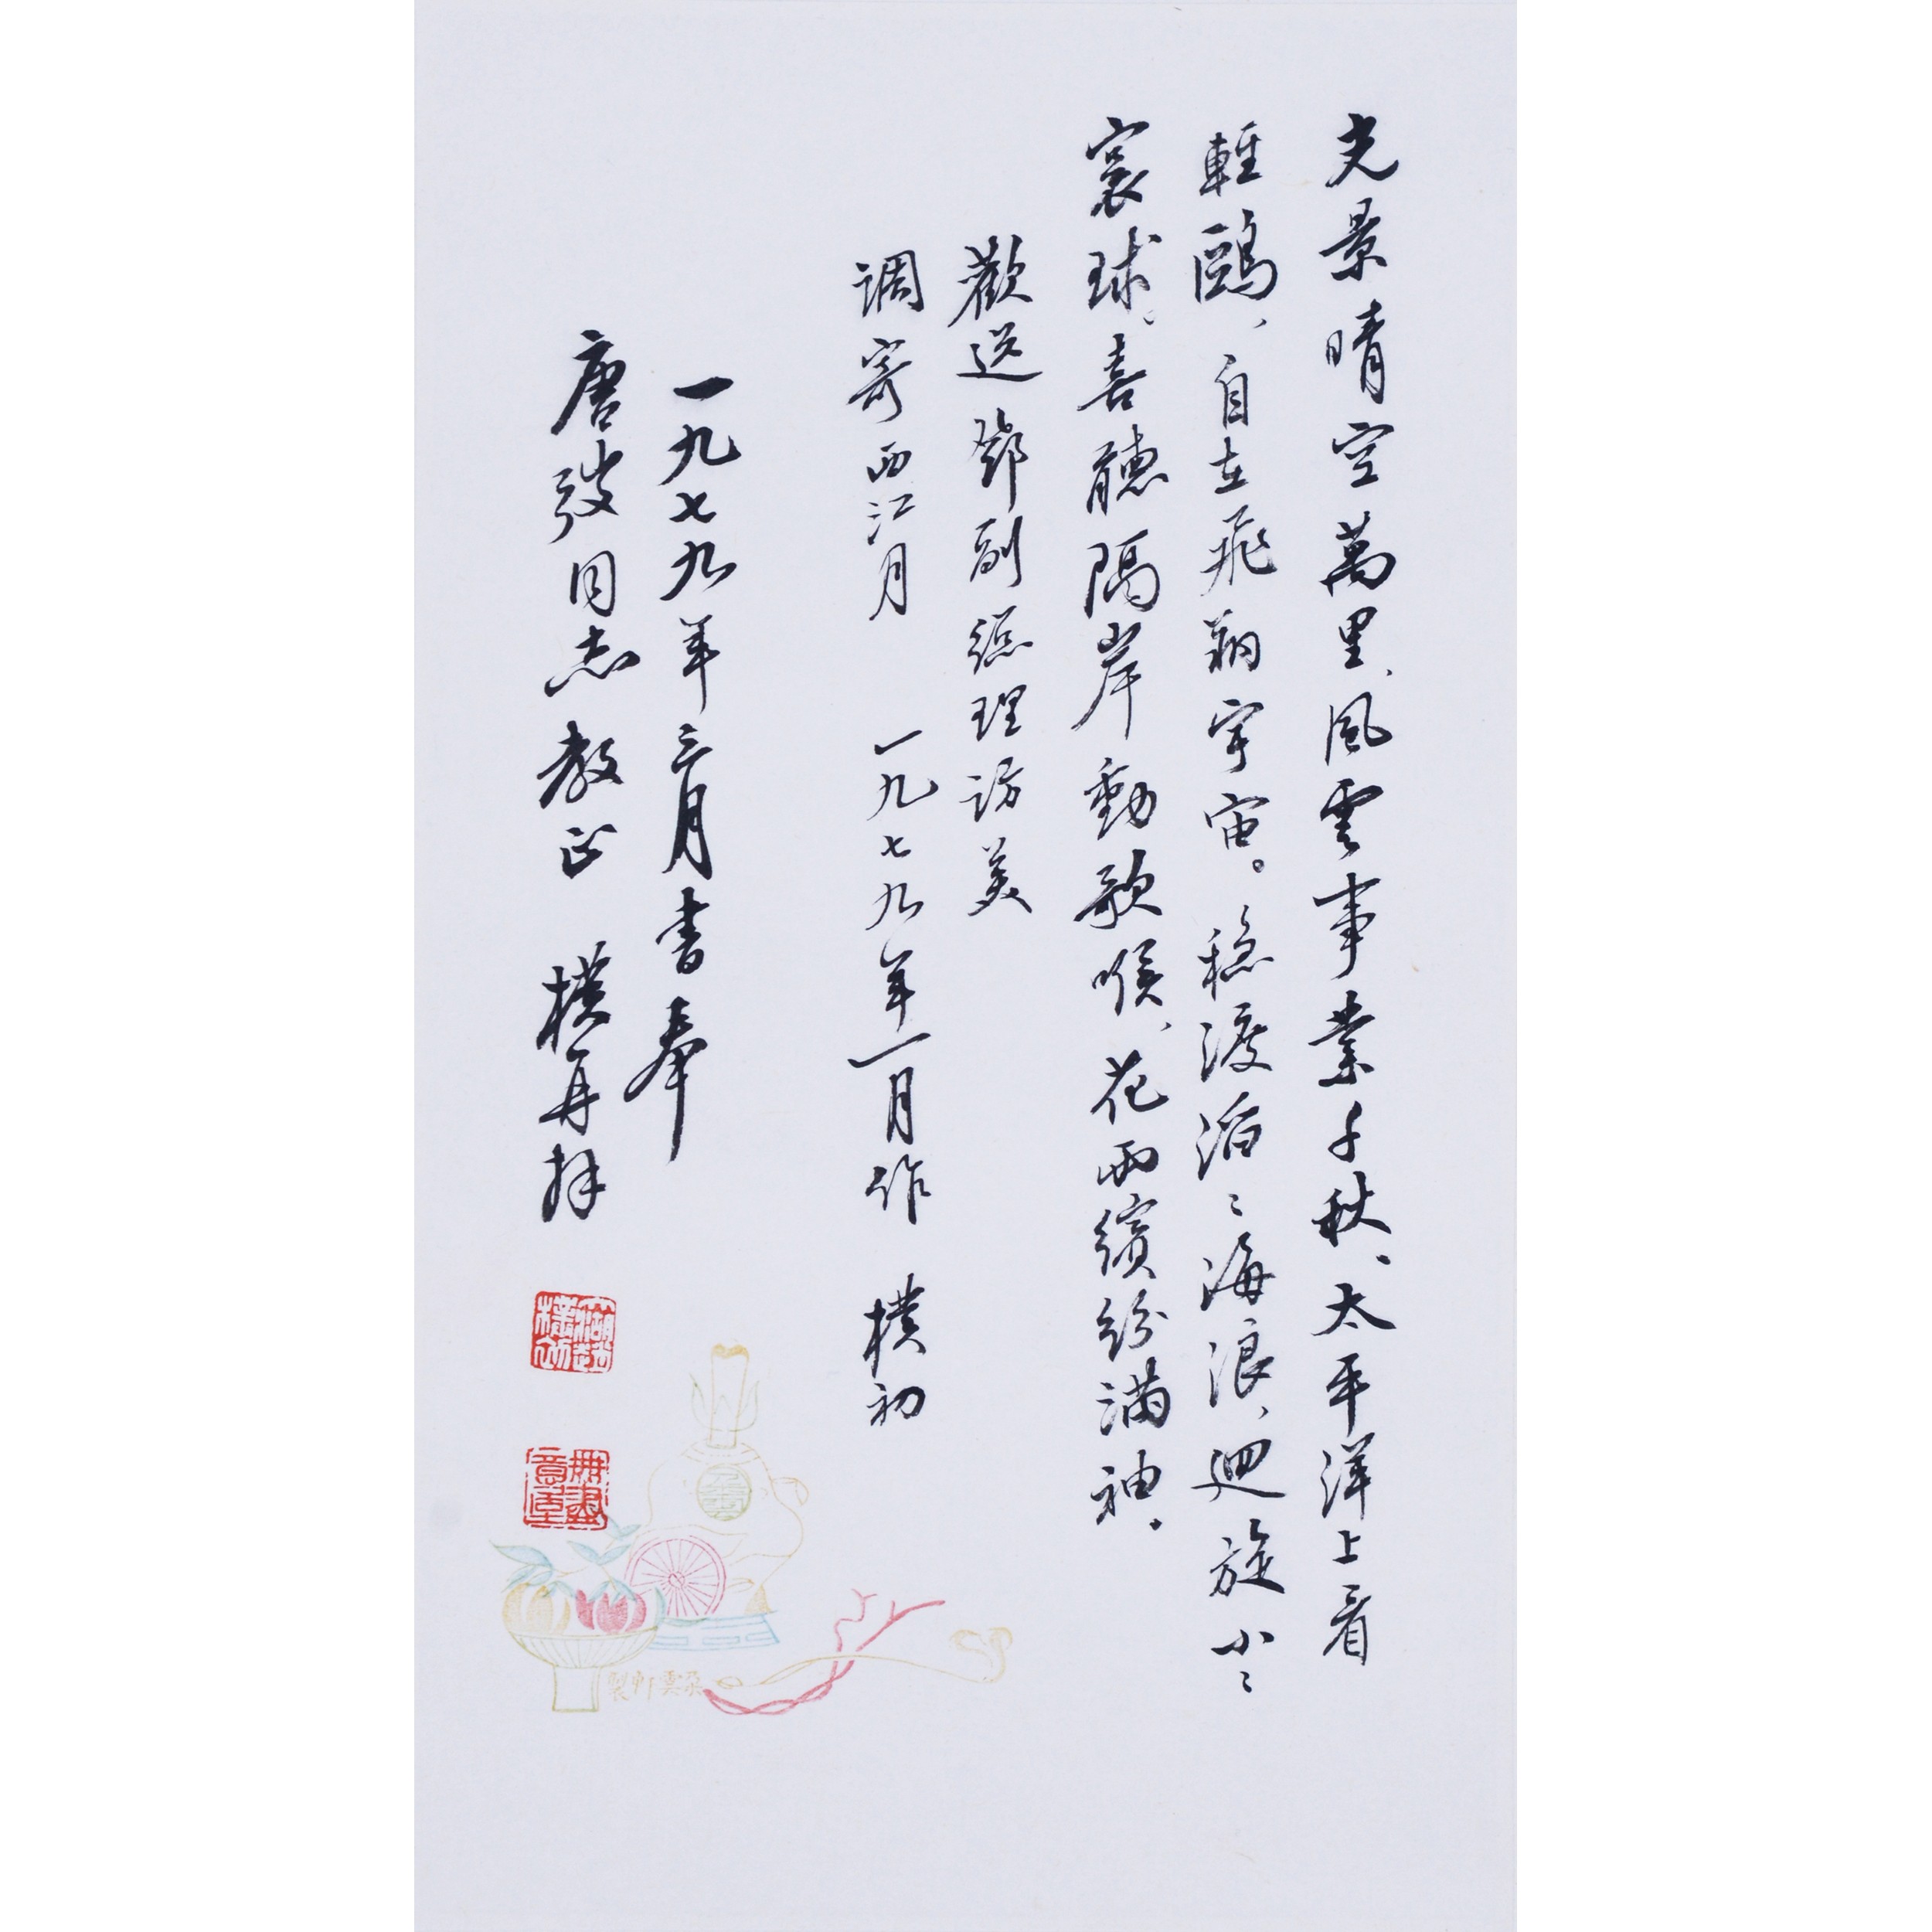 光景晴空萬里、風雲事業千秋、太平洋上看
輕鷗、自在飛翔宇宙。穩渡滔〻海浪、迴旋小〻
寰球。喜聽隔岸動歌喉、花雨繽紛滿袖。
歡送鄧副總理訪美
调寄西江月 一九七九年一月作 樸初
一九七九年三月書奉
唐弢同志教正 樸再拜
無盡意室
朵雲軒製